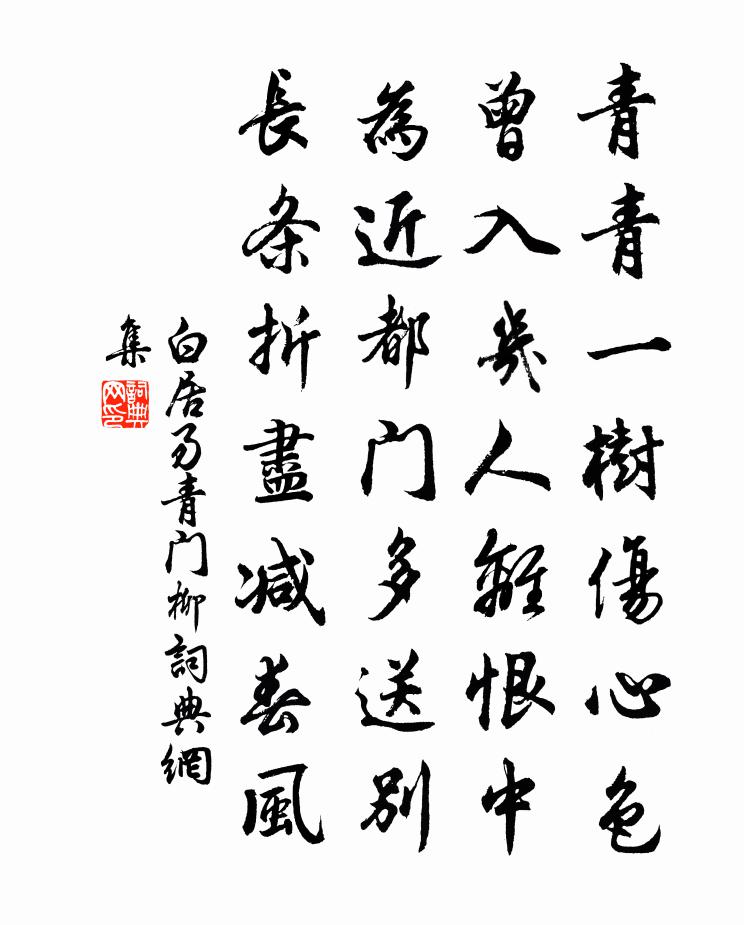 青青一樹傷心色
曾入幾人離恨中
為近都门多送别
長条折盡减春風
白居易青门柳詞典網
集
詞典
网印